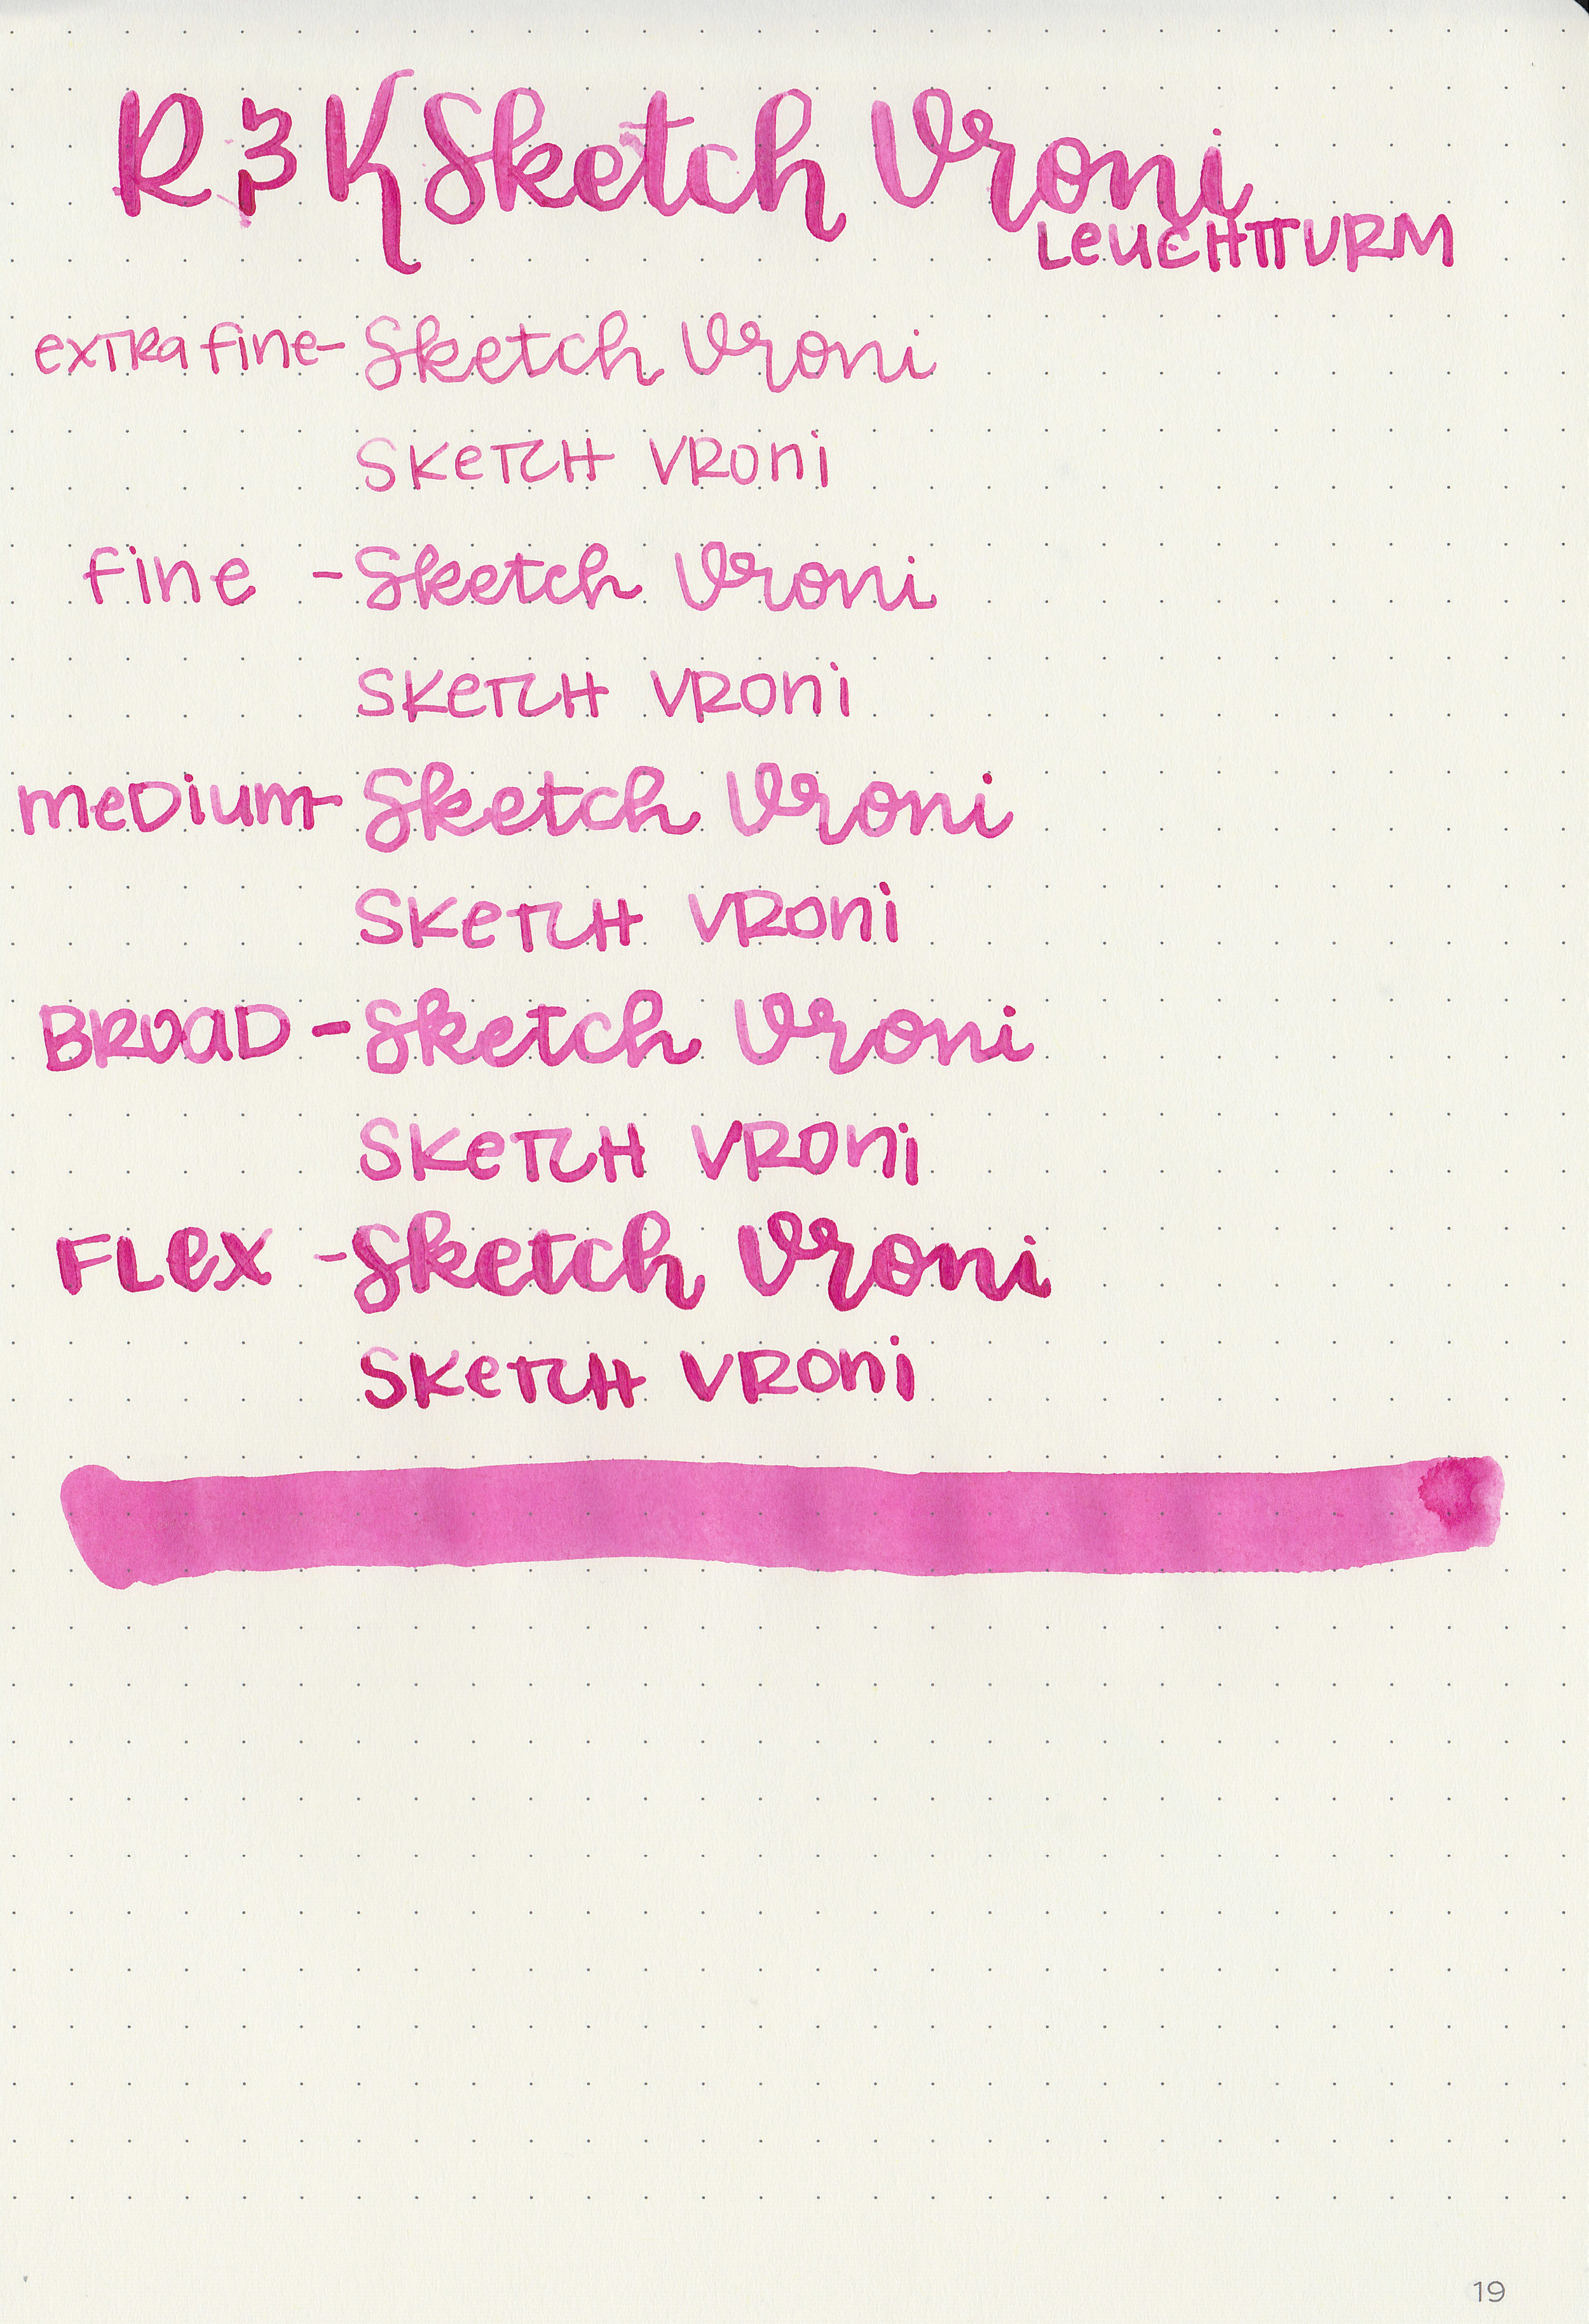 R & K Sketch Vroni
LEUCHTTURM
extra fine- Sketch Vroni
SKeTCH VRoni
fine - Sketch Vroni
SKeTCH VRoni
meDium- Sketch Vroni
SKeTCH VRoni
BROaD - Sketch Vroni
SKeTCH VRoni
FLex - Sketch Vroni
SKeTCH VRoni
19